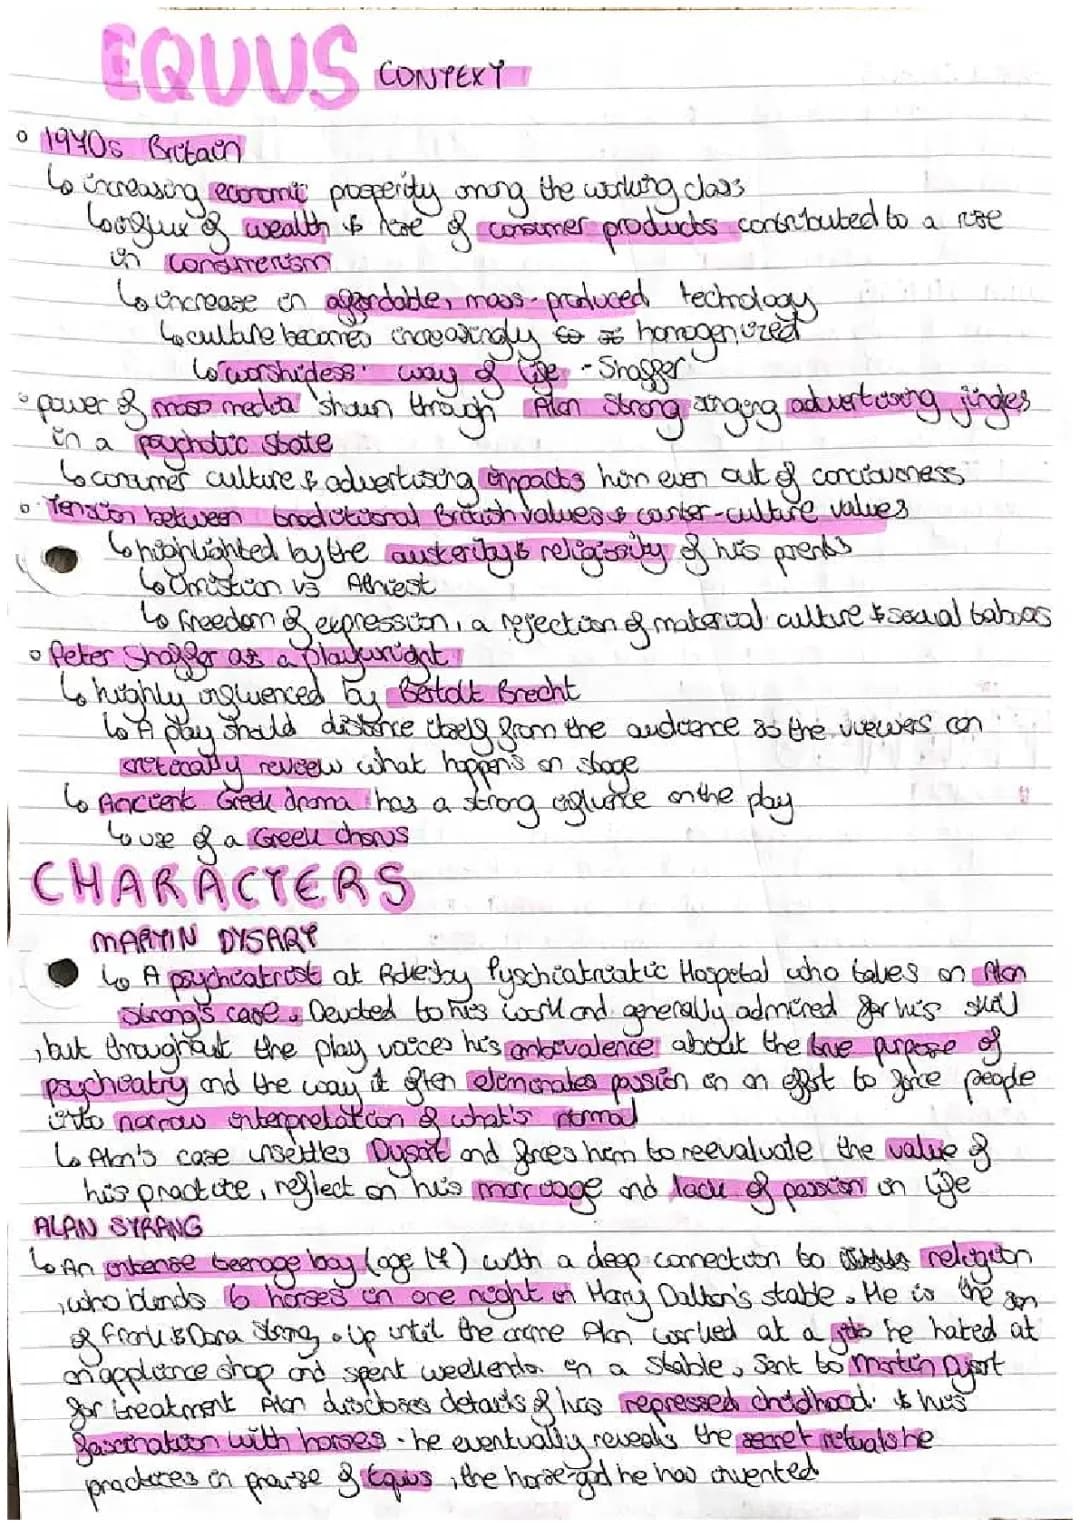 EQUUS CONTEXT
◦ 1970s Britain
↳ increasing economic prosperity among the working class
↳ influx of wealth & rise of consumer products contributed to a rise
in consumerism
↳ increase in affordable, mass-produced technology
↳ culture becomes increasingly homogenized
↳ 'worshipless' way of life - Shaffer
◦ power of mass media shown through Alan Strang singing advertising jingles
in a psychotic state
↳ consumer culture & advertising impacts him even out of conciousness
◦ Tension between traditional British values & counter-culture values
↳ highlighted by the austerity & religiosity of his parents
↳ Christian vs Athiest
↳ freedom of expression, a rejection of material culture & sexual taboos
◦ Peter Shaffer as a playwright
↳ highly influenced by Bertolt Brecht
↳ A play should distance itself from the audience so the viewers can
critically review what happens on stage
↳ Ancient Greek drama has a strong influence on the play
↳ use of a Greek chorus
CHARACTERS
MARTIN DYSART
↳ A psychiatrist at Rokesby Pyschiatriatic Hospital who takes on Alan
Strang's case. Devoted to his work and generally admired for his skill
, but throughout the play voices his ambivalence about the true purpose of
psychiatry and the way it often eliminates passion in an effort to force people
into narrow interpretation of what's normal
↳ Alan's case unsettles Dysart and forces him to reevaluate the value of
his practice, reflect on his marriage and lack of passion in life
ALAN STRANG
↳ An intense teenage boy (age 17) with a deep connection to religion
, who blinds 6 horses in one night in Harry Dalton's stable. He is the son
of Frank & Dora Strang. Up until the crime Alan worked at a job he hated at
an appliance shop and spent weekends in a stable. Sent to Martin Dysart
for treatment Alan discloses details of his repressed childhood & his
fascination with horses - he eventually reveals the secret rituals he
practices in praise of Equus, the horse-god he has invented